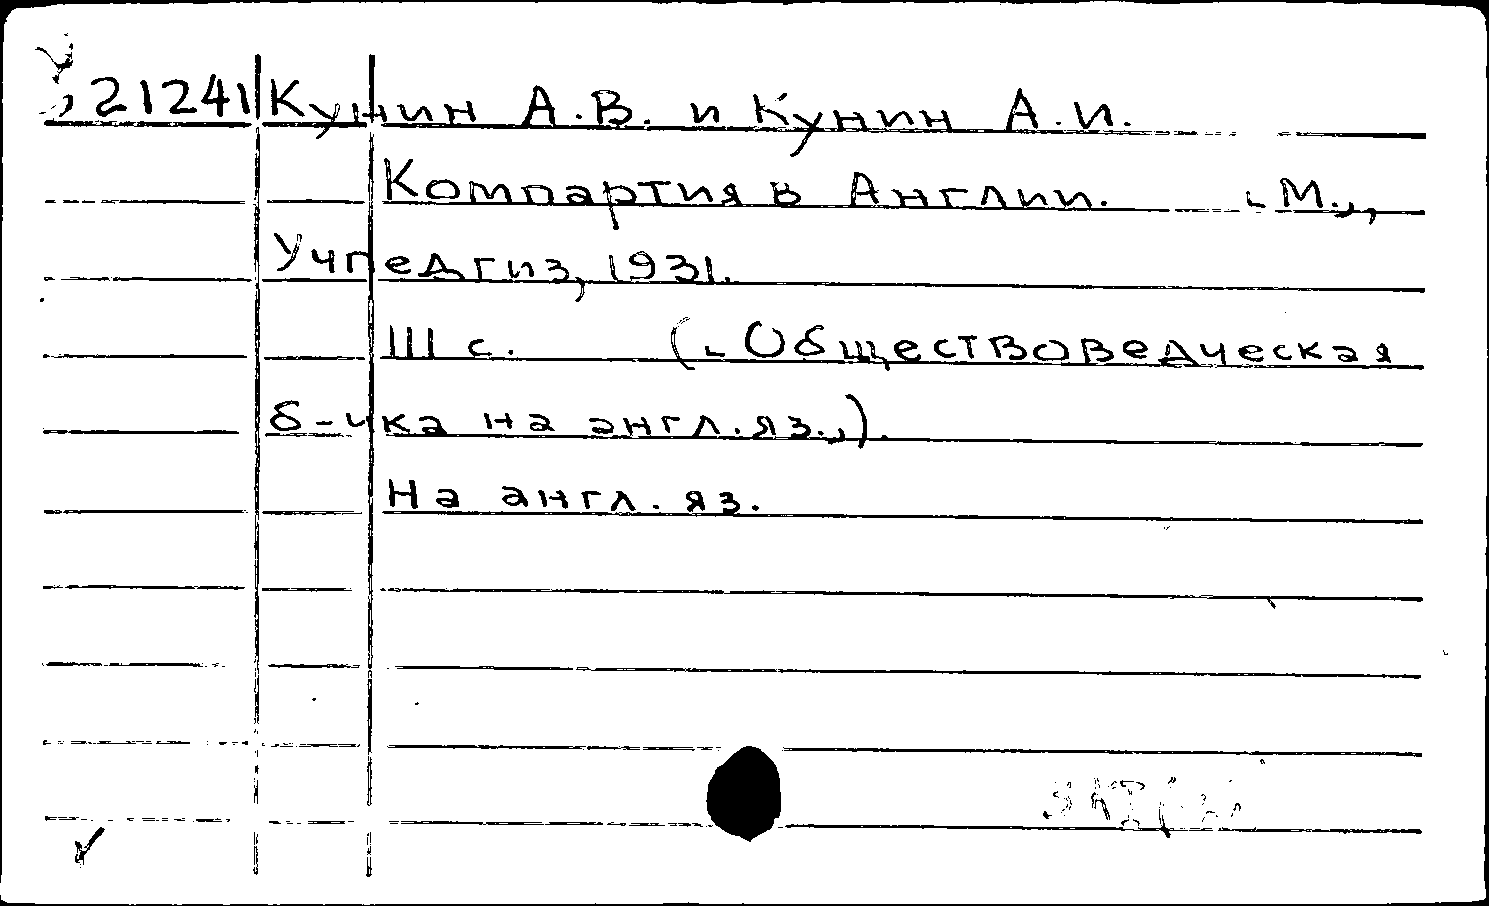 21241 Кунин А.В. и Кунин А.И.
Компартия в Англии. М.,
Учпедгиз, 1931.
111 с. (Обществоведческая
б-чка на англ.яз.,).
На англ. яз.